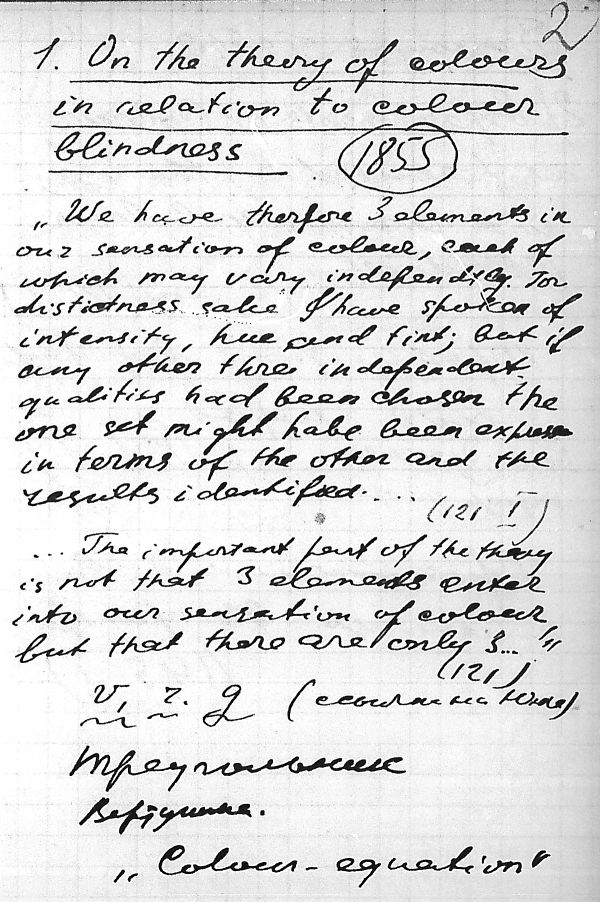 2
1. On the theory of colours
in relation to colour
blindness 1855
„We have therfore 3 elements in
our sensation of colour, each of
which may vary independ-ly. For
distictness sake I have spoken of
intensity, hue and tint; but if
any other three independent
qualities had been chosen the
one set might habe been express
in terms of the other and the
results identified....
(121 I)
... The important part of the theory
is not that 3 elements enter
into our sensation of colour,
but that there are only 3..."
(121)
v, r. g (ссылки на Юнга)
Треугольник
Вертушка.
„Colour-equation"